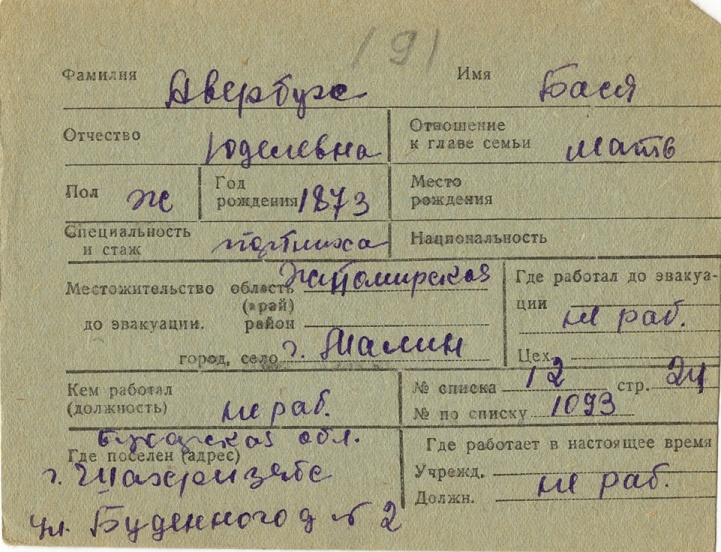 191
Фамилия Авербух Имя Бася
Отчество Юделевна Отношение к главе семьи мать
Пол ж Год рождения 1873 Место рождения
Специальность и стаж портниха Национальность
Местожительство до эвакуации. область (край) Житомирская
район
город, село г. Малин
Где работал до эвакуации не раб.
Цех.
Кем работал (должность) не раб.
№ списка 12 стр. 24
№ по списку 1093
Где поселен (адрес) Бухарская обл.
г. Шахризябс
ул. Буденного д № 2
Где работает в настоящее время
Учрежд. не раб.
Должн.